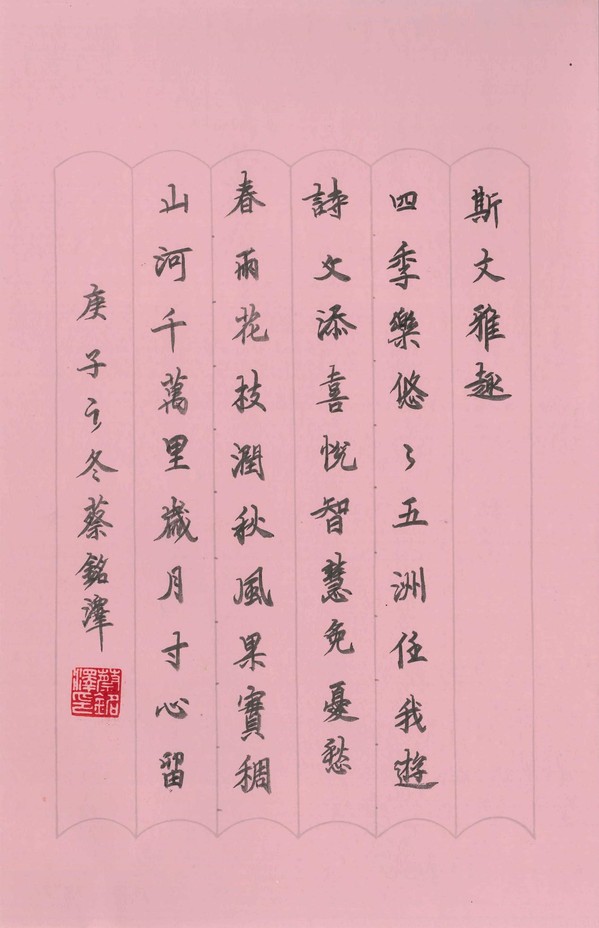 斯文雅趣
四季樂悠〻五洲任我遊
詩文添喜悅智慧免憂愁
春雨花枝潤秋風果實稠
山河千萬里歲月寸心留
庚子之冬蔡銘澤
蔡銘澤印